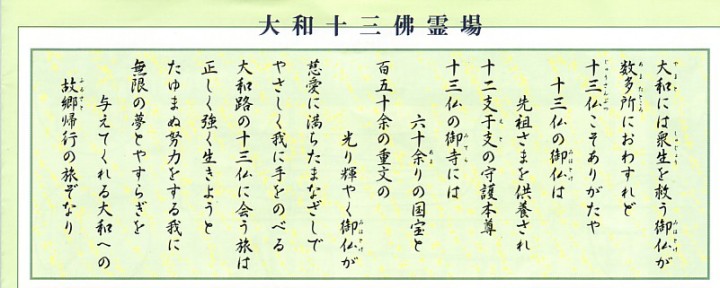 大和十三佛霊場
大和には衆生を救う御仏が
数多所におわすれど
十三仏こそありがたや
十三仏の御仏は
先祖さまを供養され
十二支干支の守護本尊
十三仏の御寺には
六十余りの国宝と
百五十余の重文の
光り輝やく御仏が
慈愛に満ちたまなざしで
やさしく我に手をのべる
大和路の十三仏に会う旅は
正しく強く生きようと
たゆまぬ努力をする我に
無限の夢とやすらぎを
与えてくれる大和への
故郷帰行の旅ぞなり